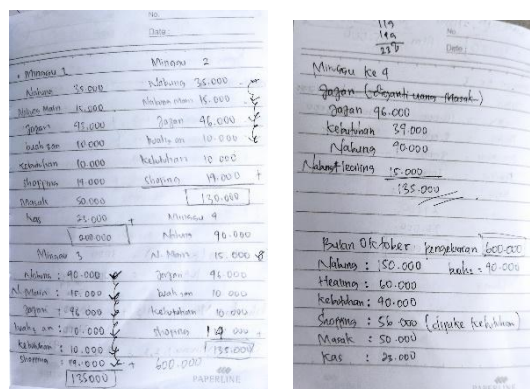 No.
Date:
• Minggu 1
Nabung 35.000
Nabung Main 15.000
Jajan 45.000
buah an 10.000
Kebutuhan 10.000
Shopping 14.000
Masak 50.000
Kas 25.000 +
200.000
Minggu 2
Nabung 35.000
Nabung Main 15.000
Jajan 46.000
buah an 10.000
Kebutuhan 10.000
Shoping 14.000 +
130.000
Minggu 3
Nabung : 40.000
N. Main : 15.000
Jajan : 46.000
buah an : 10.000
Kebutuhan : 10.000
Shopping : 14.000 +
135000
Minggu 4
Nabung 40.000
N. Main 15.000
Jajan 46.000
buah an 10.000
Kebutuhan 10.000
Shoping 14.000 +
135.000
600.000
PAPERLINE
119
119
238
No.
Date:
Minggu ke 4
Jajan (diganti uang Masak)
Jajan 46.000
Kebutuhan 34.000
Nabung 40.000
Nabung Healing 15.000
135.000
Bulan Oktober pengeluaran 600.000
Nabung : 150.000
Healing : 60.000
Kebutuhan : 40.000
Shopping : 56.000 (dipake Kebutuhan)
Masak : 50.000
Kas : 25.000